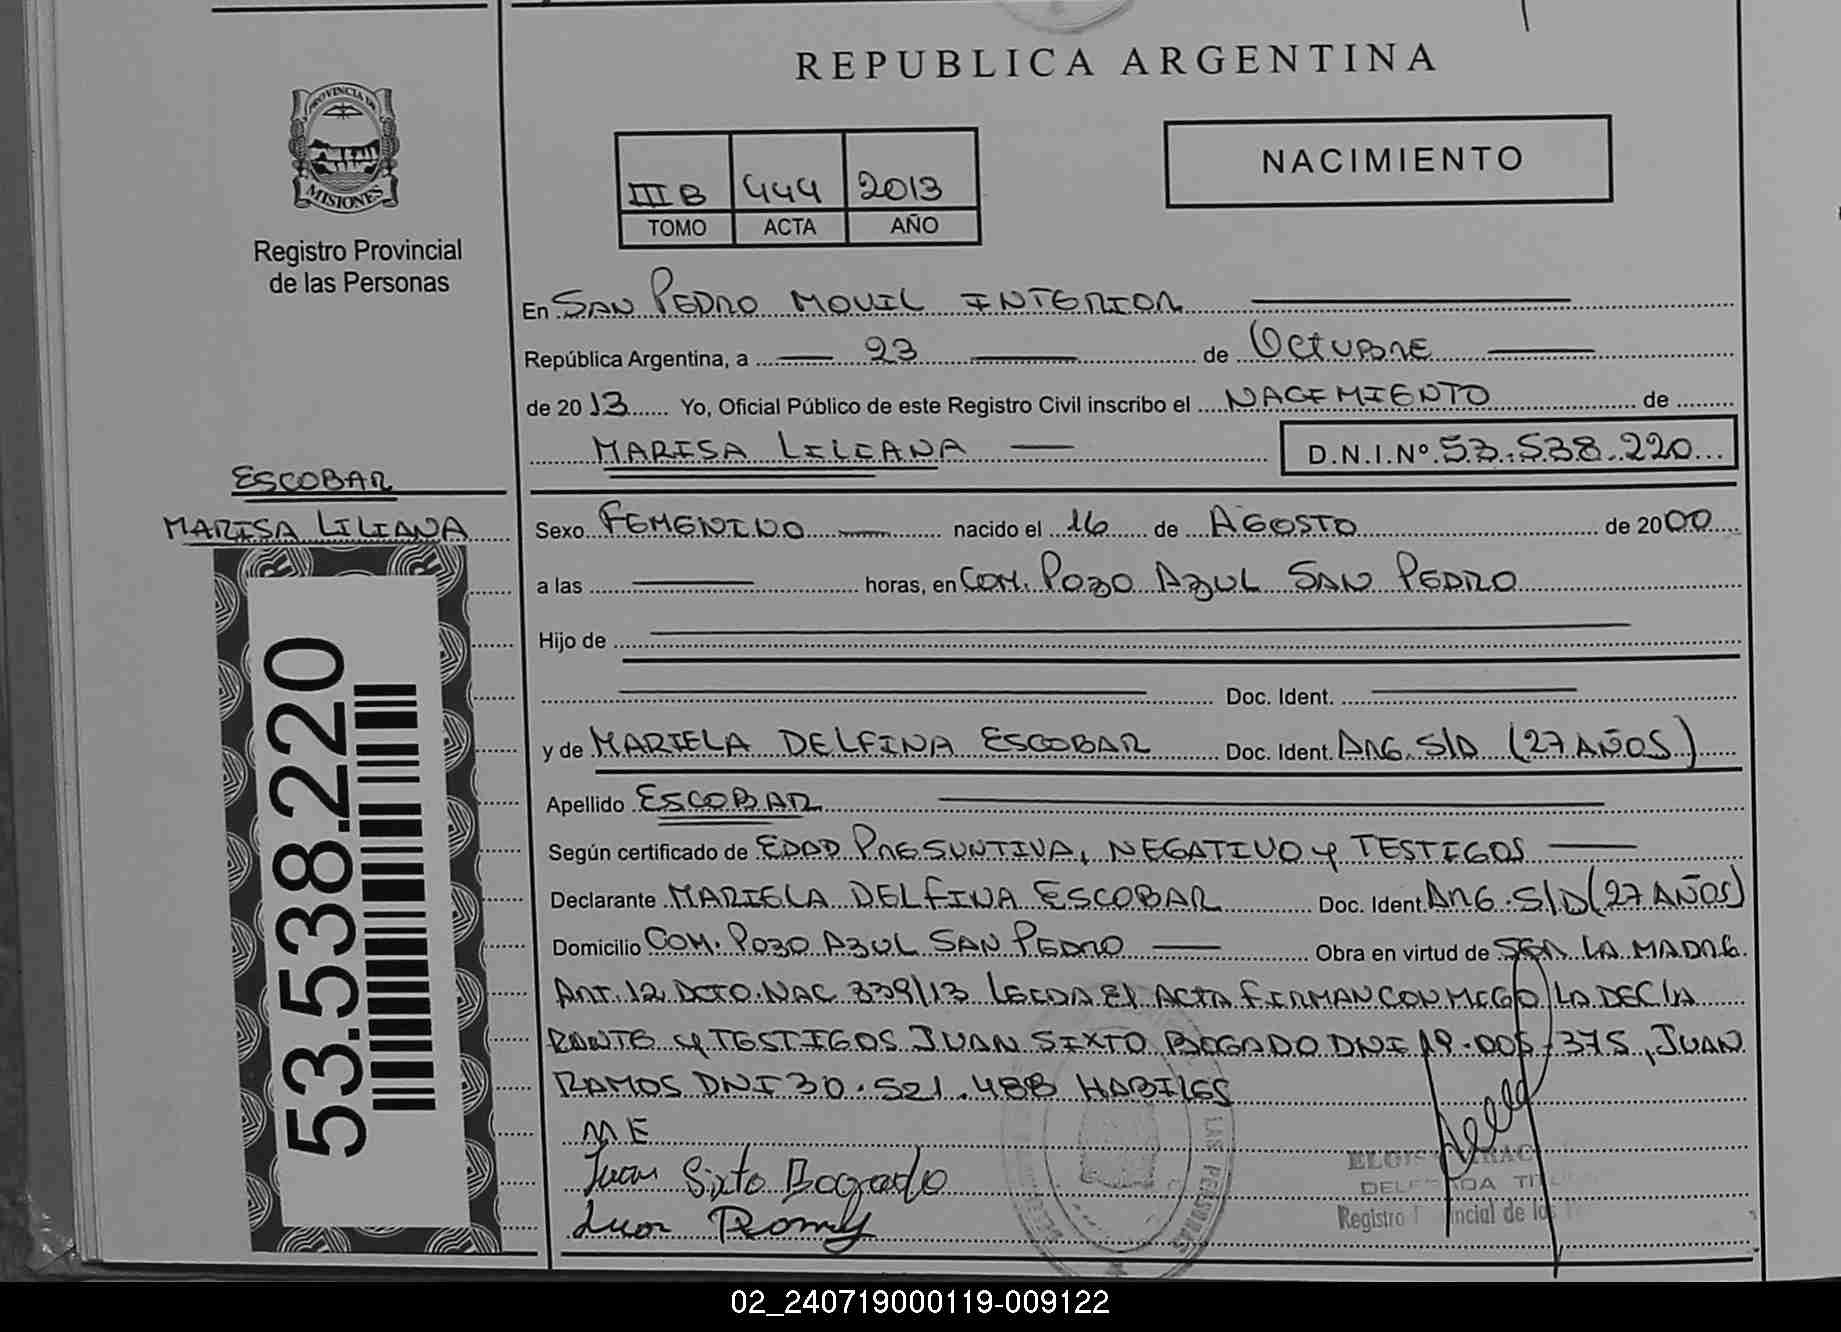 REPUBLICA ARGENTINA
PROVINCIA DE
MISIONES
Registro Provincial
de las Personas
III B 444 2013
TOMO ACTA AÑO
NACIMIENTO
En SAN PEDRO MOVIL INTERIOR
República Argentina, a 23 de OCTUBRE
de 2013 Yo, Oficial Público de este Registro Civil inscribo el NACIMIENTO de
MARISA LILIANA D.N.I.Nº 53.538.220
ESCOBAR
MARISA LILIANA
Sexo FEMENINO nacido el 16 de AGOSTO de 2000
a las horas, en COM. POZO AZUL SAN PEDRO
Hijo de
Doc. Ident.
y de MARIELA DELFINA ESCOBAR Doc. Ident. ARG. S/D (27 AÑOS)
Apellido ESCOBAR
Según certificado de EDAD PRESUNTIVA, NEGATIVO y TESTIGOS
Declarante MARIELA DELFINA ESCOBAR Doc. Ident. ARG. S/D (27 AÑOS)
Domicilio COM. POZO AZUL SAN PEDRO Obra en virtud de SER LA MADRE.
ART. 12 DCTO. NAC 339/13 LEIDA EL ACTA FIRMAN CONMIGO LA DECLA
RANTE y TESTIGOS JUAN SIXTO BOGADO DNI 19.005.375, JUAN
RAMOS DNI 30.521.488 HABILES
M E
Juan Sixto Bogado
Juan Ramos
53.538.220
LAS PERSONAS
DELEGADA
Registro Provincial de las
02_240719000119-009122